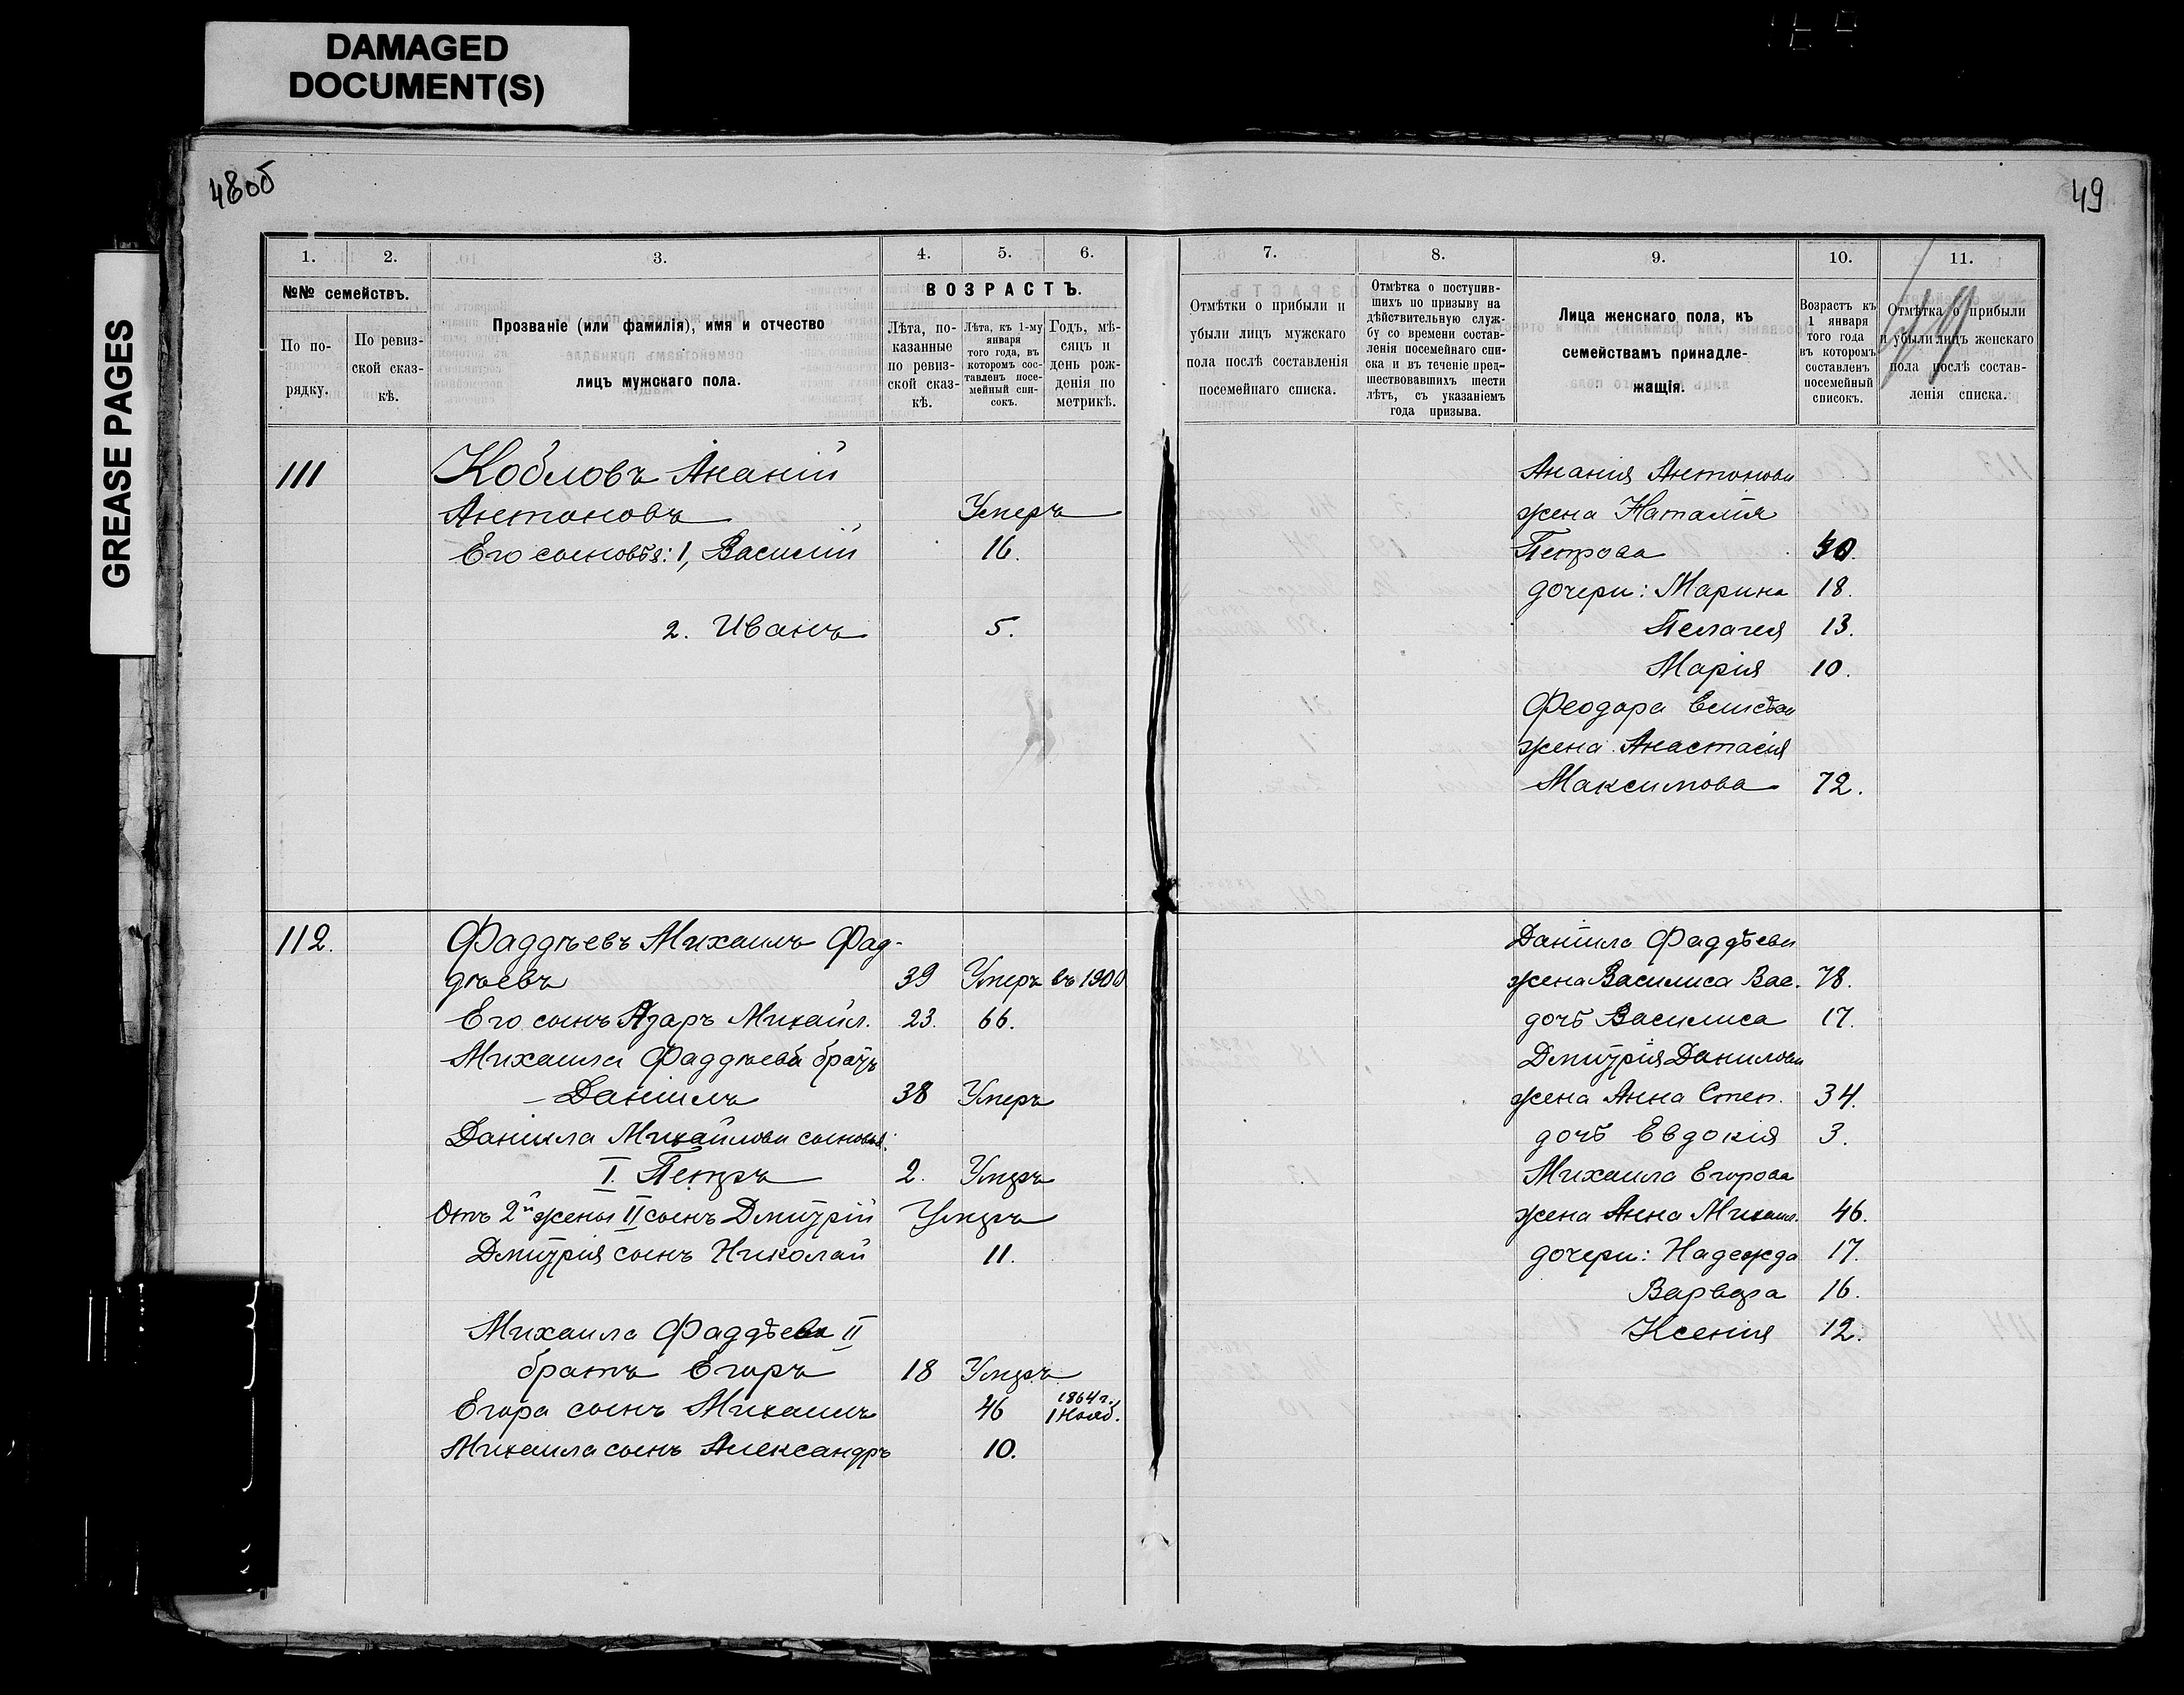 DAMAGED
DOCUMENT(S)
GREASE PAGES
48об
49
1.
2.
3.
4.
5.
6.
№№ семействъ.
По по-
рядку.
По ревиз-
ской сказ-
кѣ.
Прозваніе (или фамилія), имя и отчество
лицъ мужскаго пола.
ВОЗРАСТЪ.
Лѣта, по-
казанные
по ревиз-
ской сказ-
кѣ.
Лѣта, къ 1-му
января
того года, въ
которомъ сос-
тавленъ посе-
мейный спи-
сокъ.
Годъ, мѣ-
сяцъ и
день рож-
денія по
метрикѣ.
7.
8.
9.
10.
11.
Отмѣтки о прибыли и
убыли лицъ мужскаго
пола послѣ составленія
посемейнаго списка.
Отмѣтка о поступив-
шихъ по призыву на
дѣйствительную служ-
бу со времени состав-
ленія посемейнаго спи-
ска и въ теченіе пред-
шествовавшихъ шести
лѣтъ, съ указаніемъ
года призыва.
Лица женскаго пола, къ
семействамъ принадле-
жащія.
Возрастъ къ
1 января
того года
въ которомъ
составленъ
посемейный
списокъ.
Отмѣтка о прибыли
и убыли лицъ женскаго
пола послѣ состав-
ленія списка.
49
111 Кобловъ Ананій
Антоновъ Умеръ
Его сыновья: 1, Василій 16.
2. Иванъ 5.
Ананія Антонова
жена Наталія
Петрова 40.
дочери: Марина 18.
Пелагея 13.
Марія 10.
Феодора
жена Анастасія
Максимова 72.
112. Фаддѣевъ Михаилъ Фад-
дѣевъ 39 Умеръ въ 1900
Его сынъ Азаръ Михайл. 23. 66.
Михаила Фаддѣева братъ
Даніилъ 38 Умеръ
Даніила Михайлова сыновья:
I. Петръ 2. Умеръ
Отъ 2й жены II сынъ Дмитрій Умеръ
Дмитрія сынъ Николай 11.
Михаила Фаддѣева II
братъ Егоръ 18 Умеръ
Егора сынъ Михаилъ 46 1864 г. 1 Нояб.
Михаила сынъ Александръ 10.
Даніила Фаддѣева
жена Василиса Вас. 78.
дочь Василиса 17.
Дмитрія Данилова
жена Анна Степ. 34.
дочь Евдокія 3.
Михаила Егорова
жена Анна Михаил. 46.
дочери: Надежда 17.
Варвара 16.
Ксенія 12.